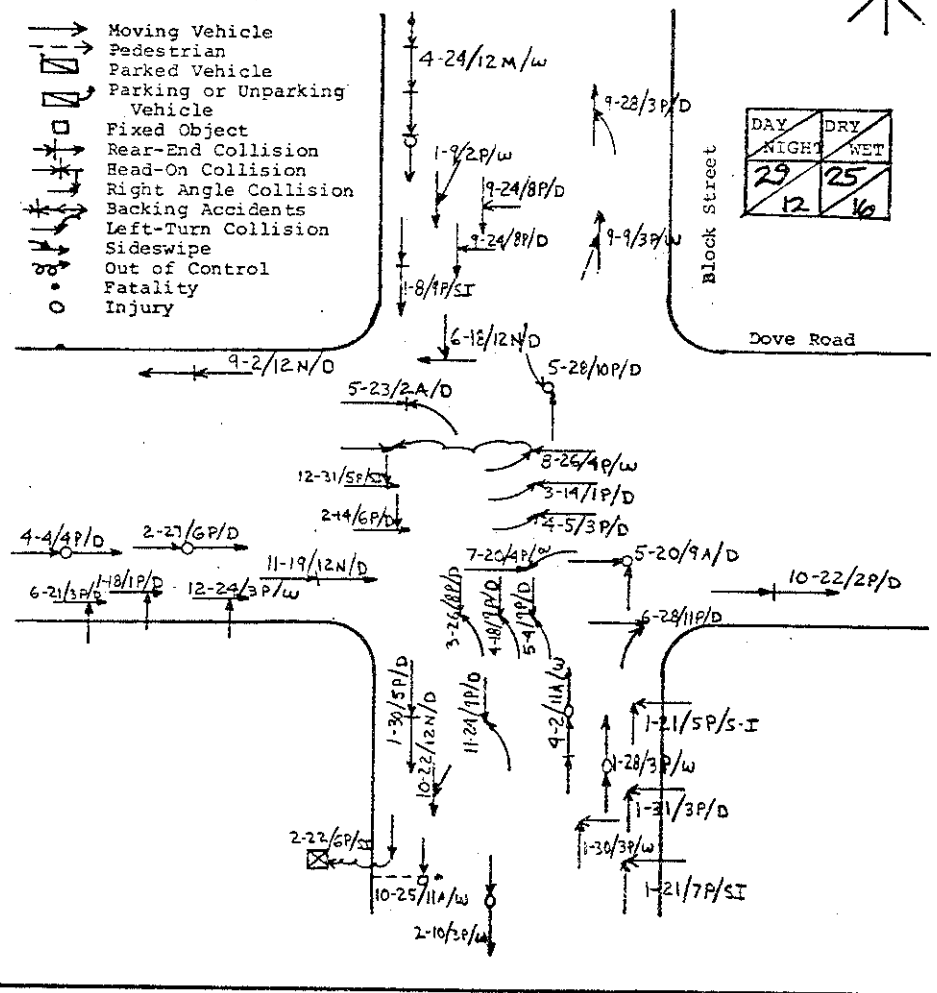 Moving Vehicle
Pedestrian
Parked Vehicle
Parking or Unparking
Vehicle
Fixed Object
Rear-End Collision
Head-On Collision
Right Angle Collision
Backing Accidents
Left-Turn Collision
Sideswipe
Out of Control
Fatality
Injury
4-24/12M/W
9-28/3P/D
DAY NIGHT DRY WET
29 12 25 16
1-9/2P/W
9-24/8P/D
9-24/8P/D
9-9/3P/W
1-8/9P/SI
Block Street
Dove Road
6-18/12N/D
9-2/12N/D
5-28/10P/D
5-23/2A/D
8-26/4P/W
12-31/5P/SI
3-14/1P/D
2-14/6P/D
4-5/3P/D
4-4/4P/D
2-27/6P/D
7-20/4P/W
5-20/9A/D
11-19/12N/D
10-22/2P/D
6-21/3P/D
1-18/1P/D
12-24/3P/W
3-26/8P/D
4-18/9P/D
5-4/9P/D
6-28/11P/D
1-30/5P/D
10-22/12N/D
11-24/1P/D
4-2/11A/W
1-21/5P/S-I
1-28/3P/W
1-31/3P/D
1-30/3P/W
2-22/6P/SI
1-21/7P/SI
10-25/11A/W
2-10/3P/W